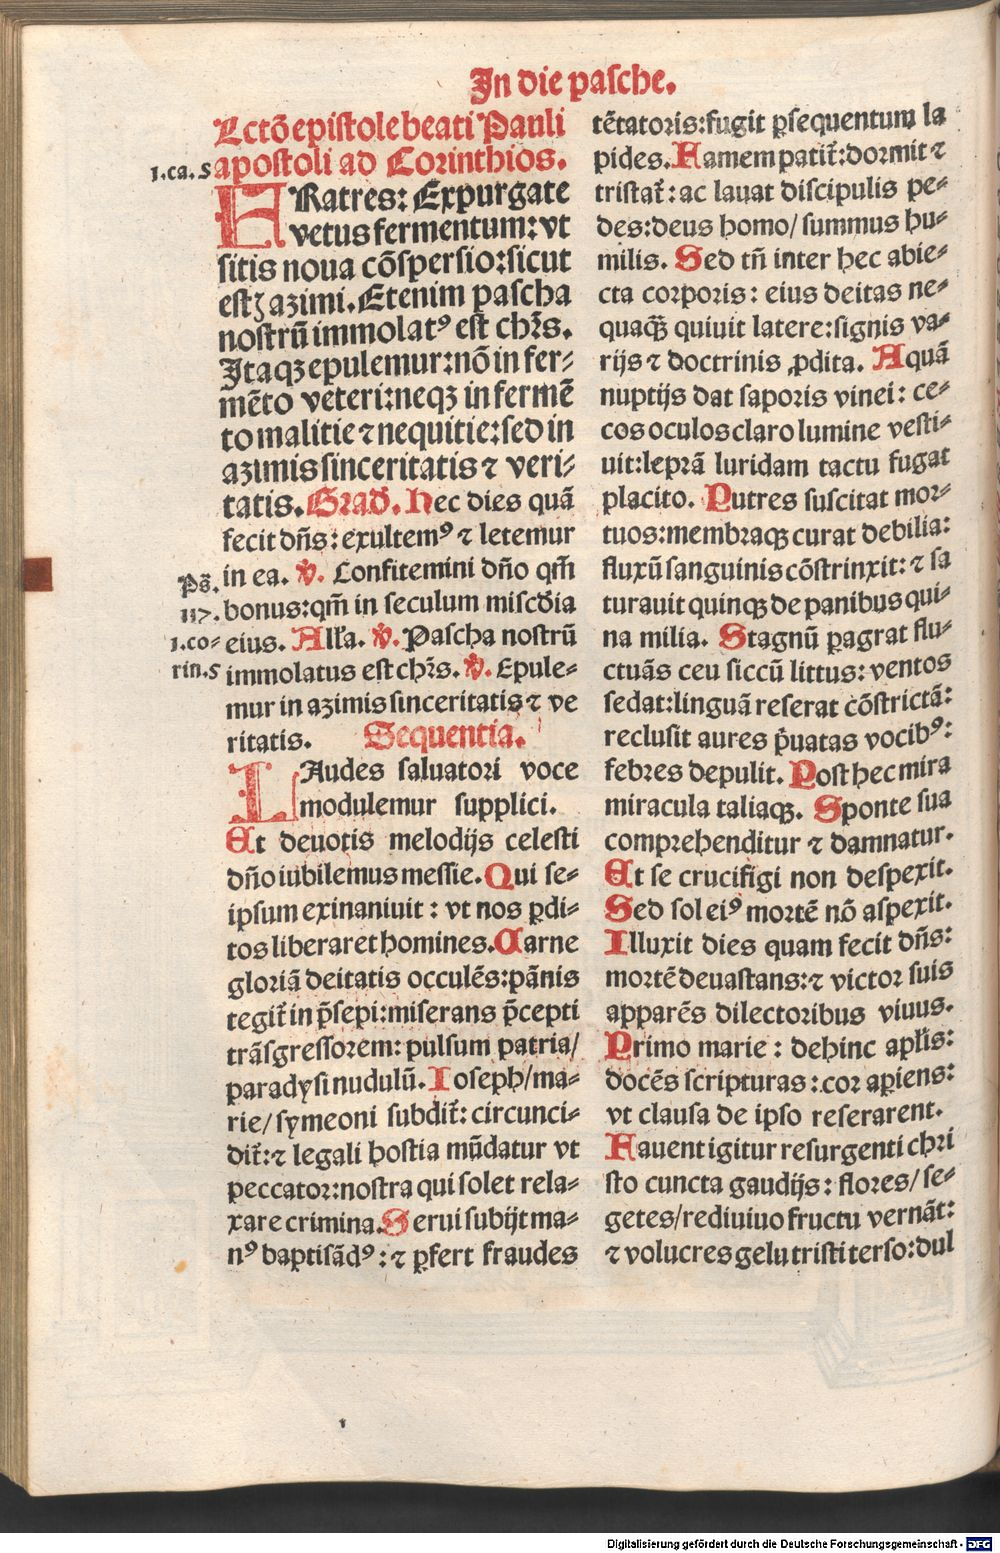 In die pasche.
Lctõ epistole beati Pauli
apostoli ad Corinthios.
1.ca.5
FRatres: Expurgate
vetus fermentum: vt
sitis noua cõspersio: sicut
estꝫ azimi. Etenim pascha
nostrũ immolatꝰ est chꝛ̃s.
Itaqꝫ epulemur: nõ in fer⸗
mẽto veteri: neqꝫ in fermẽ
to malitie ⁊ nequitie: sed in
azimis sinceritatis ⁊ veri⸗
tatis. Grad̃. Hec dies quã
fecit dñs: exultemꝰ ⁊ letemur
in ea. ℣. Confitemini dño qm̃
Ps̃.
117.
bonus: qm̃ in seculum misc̃dia
eius. All'a. ℣. Pascha nostrũ
1.co⸗
rin.5
immolatus est chꝛ̃s. ℣. Epule⸗
mur in azimis sinceritatis ⁊ ve
ritatis. Sequentia.
LAudes saluatori voce
modulemur supplici.
Et deuotis melodijs celesti
dño iubilemus messie. Qui se⸗
ipsum exinaniuit: vt nos ꝑdi⸗
tos liberaret homines. Carne
gloriã deitatis occulẽs: pãnis
tegit̃ in p̃sepi: miserans p̃cepti
trãsgressorem: pulsum patria/
paradysi nudulũ. Ioseph/ ma⸗
rie/ symeoni subdit̃: circunci⸗
dit̃: ⁊ legali hostia mũdatur vt
peccator: nostra qui solet rela⸗
xare crimina. Serui subijt ma⸗
nꝰ baptisãdꝰ: ⁊ ꝑfert fraudes
tẽtatoris: fugit ꝑsequentum la
pides. Famem patit̃: dormit ⁊
tristat̃: ac lauat discipulis pe⸗
des: deus homo/ summus hu⸗
milis. Sed tñ inter hec abie⸗
cta corporis: eius deitas ne⸗
quaq̃ꝫ quiuit latere: signis va⸗
rijs ⁊ doctrinis ꝓdita. Aquã
nuptijs dat saporis vinei: ce⸗
cos oculos claro lumine vesti⸗
uit: leprã luridam tactu fugat
placito. Putres suscitat mor⸗
tuos: membraqꝫ curat debilia:
fluxũ sanguinis cõstrinxit: ⁊ sa
turauit quinqꝫ de panibus qui⸗
na milia. Stagnũ ꝑagrat flu⸗
ctuãs ceu siccũ littus: ventos
sedat: linguã reserat cõstrictã:
reclusit aures p̃uatas vocibꝰ:
febres depulit. Post hec mira
miracula taliaqꝫ. Sponte sua
comprehenditur ⁊ damnatur.
Et se crucifigi non despexit.
Sed sol eiꝰ mortẽ nõ aspexit.
Illuxit dies quam fecit dñs:
mortẽ deuastans: ⁊ victor suis
apparẽs dilectoribus viuus.
Primo marie: dehinc apl'is:
docẽs scripturas: cor apiens:
vt clausa de ipso reserarent.
Fauent igitur resurgenti chri
sto cuncta gaudijs: flores/ se⸗
getes/ rediuiuo fructu vernãt:
⁊ volucres gelu tristi terso: dul
Digitalisierung gefördert durch die Deutsche Forschungsgemeinschaft - DFG